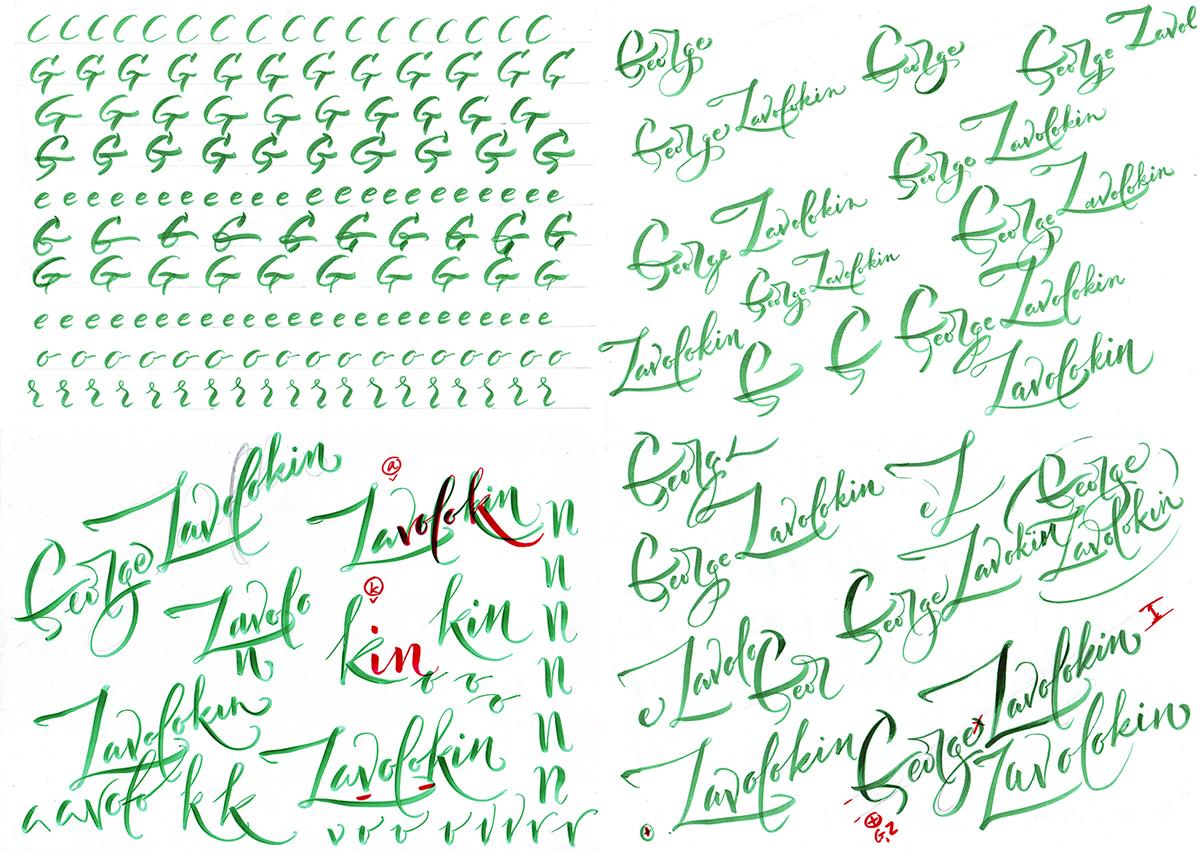 C C C C C C C C C C C C C C C C C C
G G G G G G G G G G G G
G G G G G G G G G
G G G G G G G G G G
e e e e e e e e e e e e e e e e e e e e e e
G G G G G G G G G G
G G G G G G G G G
e e e e e e e e e e e e e e e e e e e e e e
o o o o o o o o o o o o o o o o o o
r r r r r r r r r r r r r r r r r r
George
George
George Zavol
George Zavolokin
George Zavolokin
George Zavolokin
George Zavolokin
George Zavolokin
George Zavolokin
Zavolokin
G
G
Zavolokin
George Zavolokin
a
Zavolokin
n
n
n
n
n
n
Zavolo
n
k
kin
kin
o o o o
Zavolokin
Zavolokin
a a v o l o k k
v v o o v v v r r
Georg Z
George Zavolokin
e Z
George
Zavolokin
George Zavokin
Zavolo
e
Geor
George Zavolokin
I
Zavolokin
Zavolokin
G.2